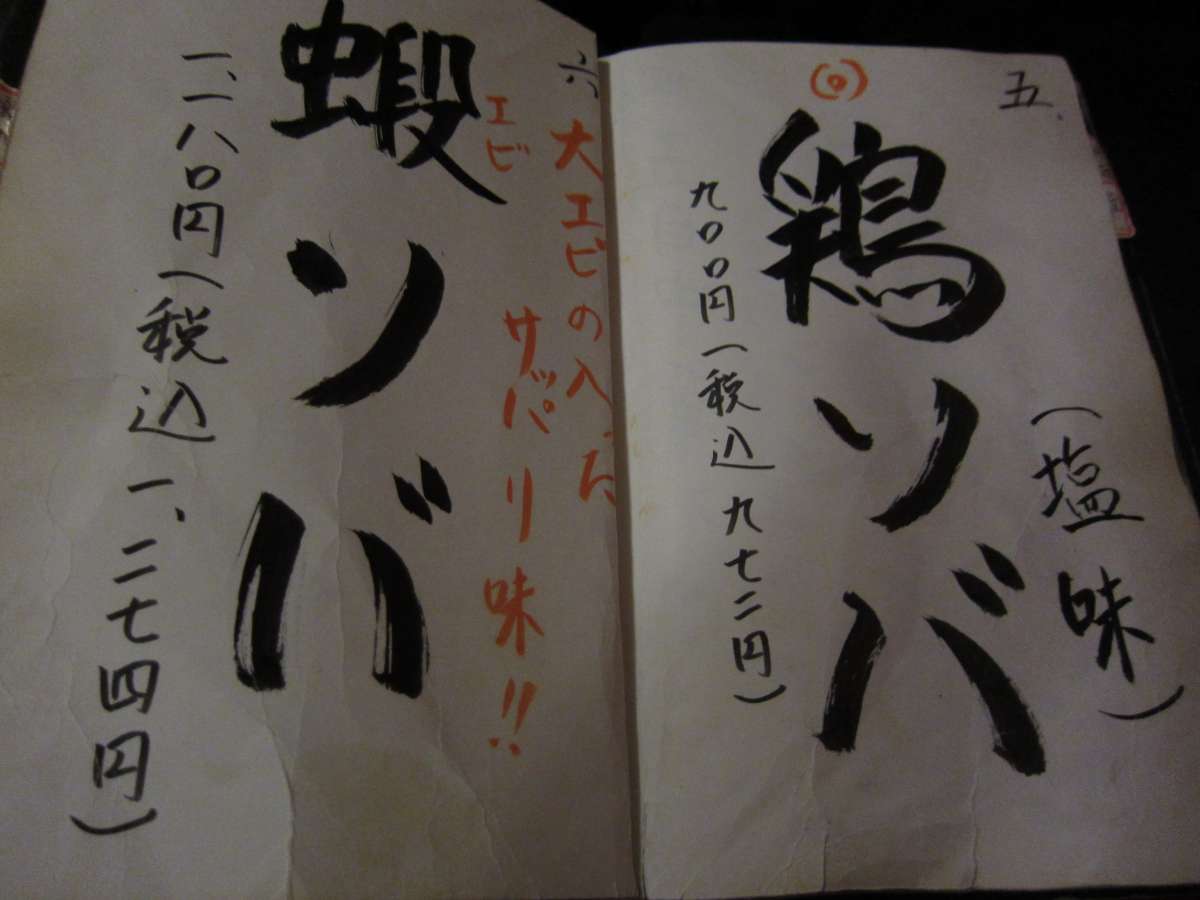 五
(塩味)
鶏ソバ
九〇〇円(税込九七二円)
六
大エビの入った
サッパリ味!!
エビ
蝦ソバ
一、一八〇円(税込一、二七四円)